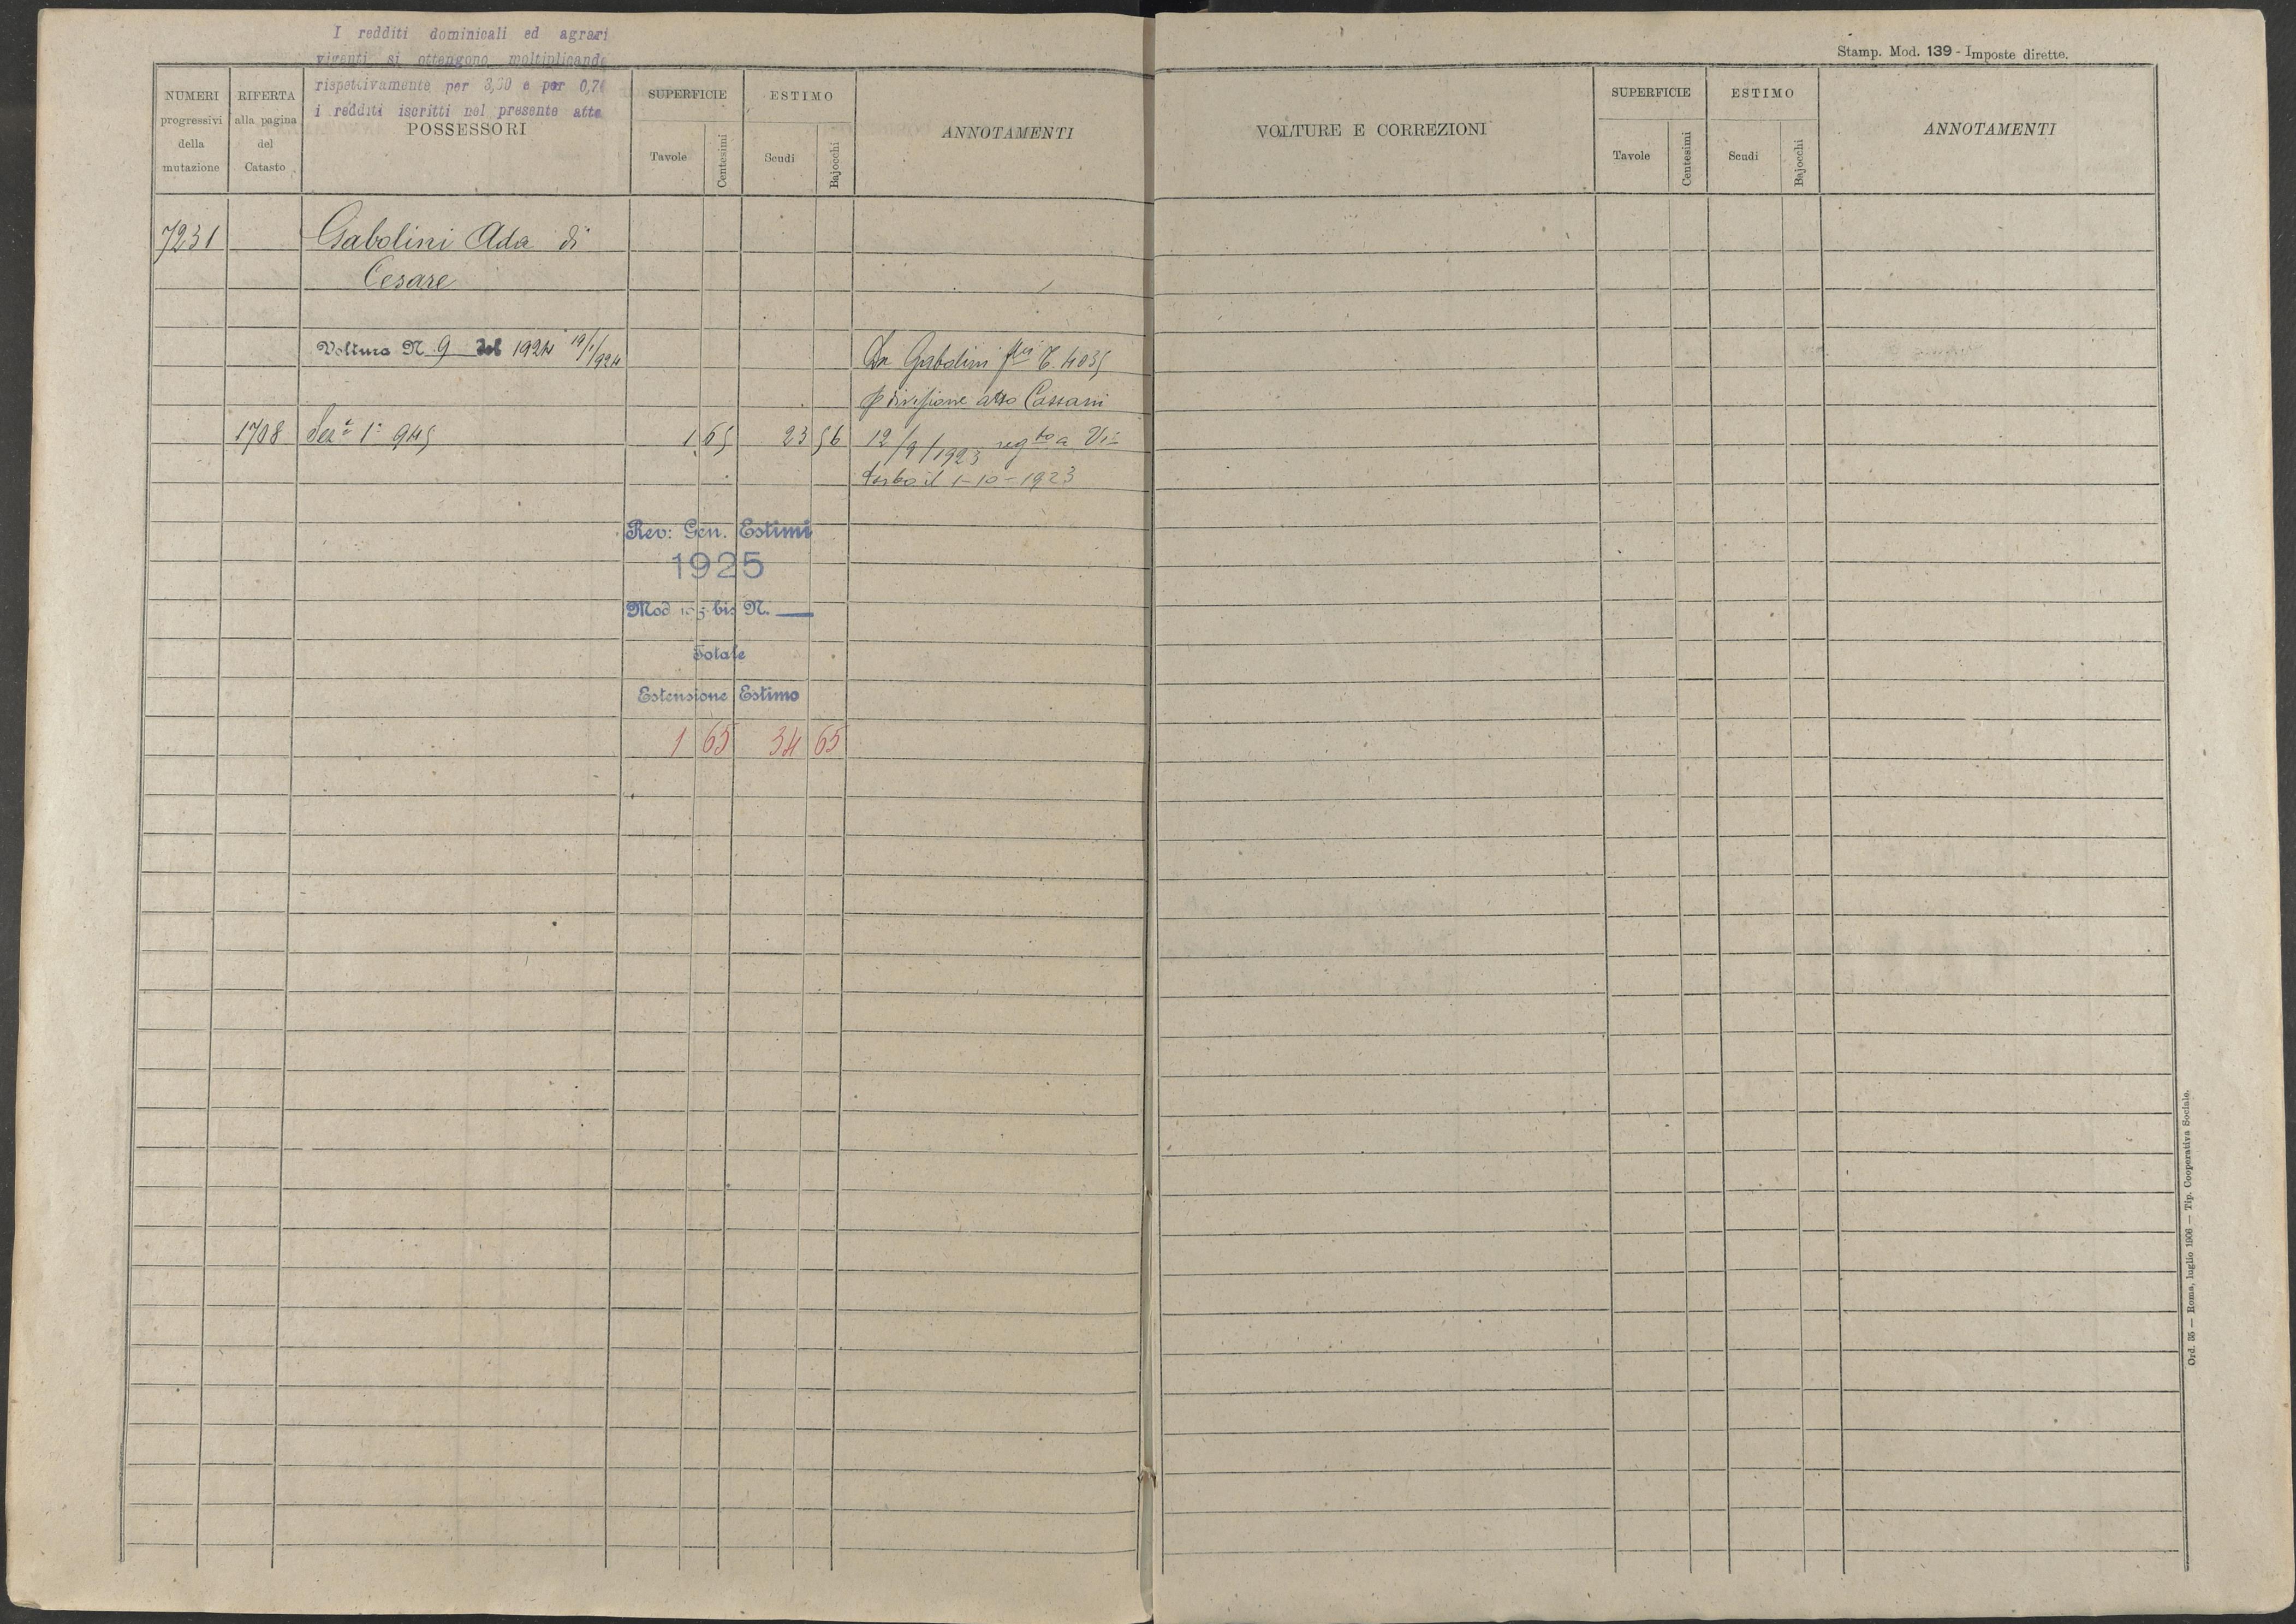 I redditi dominicali ed agrari
vigenti si ottengono moltiplicando
rispettivamente per 3,50 e per 0,70
i redditi iscritti nel presente atto
Stamp. Mod. 139 - Imposte dirette.
NUMERI progressivi della mutazione
RIFERTA alla pagina del Catasto
POSSESSORI
SUPERFICIE
Tavole
Centesimi
ESTIMO
Scudi
Bajocchi
ANNOTAMENTI
VOLTURE E CORREZIONI
SUPERFICIE
Tavole
Centesimi
ESTIMO
Scudi
Bajocchi
ANNOTAMENTI
7231 Gabolini Ada di
Cesare
Voltura N. 9 del 1924 19/1/924
Da Gabolini f.lli C. 4035
p divisione atto Cassani
1708 Sez.e 1a 945 1 65 23 56 12/9/1923 reg.to a Vi-
terbo il 1-10-1923
Rev: Gen. Estimi
1925
Mod bis N.
Totale
Estensione Estimo
1 65 34 65
Ord. 35 — Roma, luglio 1906 — Tip. Cooperativa Sociale.